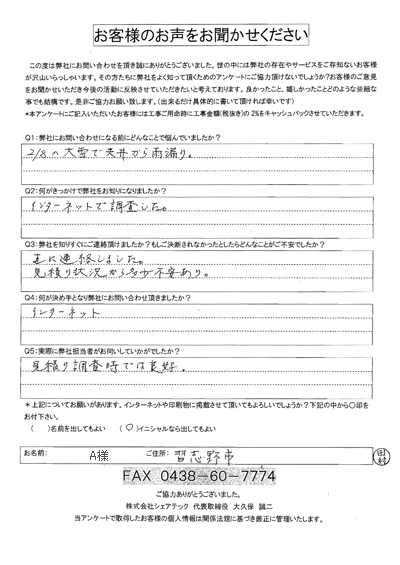 お客様のお声をお聞かせください
この度は弊社にお問い合わせを頂き誠にありがとうございました。世の中には弊社の存在やサービスをご存知ないお客様
が沢山いらっしゃいます。その方たちに弊社をよく知って頂くためのアンケートにご協力頂けないでしょうか?お客様のご意見
をお聞かせいただき今後の活動に反映させていただきたいと考えております。良かったこと、嬉しかったことどのような些細な
事でも結構です。是非ご協力お願い致します。(出来るだけ具体的に書いて頂ければ幸いです)
*本アンケートにご記入いただいたお客様には工事ご用命時に工事金額(税抜き)の2%をキャッシュバックさせていただきます。
Q1:弊社にお問い合わせになる前にどんなことで悩んでいましたか?
2/8の大雪で天井から雨漏り。
Q2:何がきっかけで弊社をお知りになりましたか?
インターネットで調査した。
Q3:弊社を知りすぐにご連絡頂けましたか?もしご決断されなかったとしたらどんなことがご不安でしたか?
直に連絡しました。
見積り状況から多少不安あり。
Q4:何が決め手となり弊社にお問い合わせ頂きましたか?
インターネット
Q5:実際に弊社担当者がお伺いしていかがでしたか?
見積り調査時では良好。
*上記についてお願いがあります。インターネットや印刷物に掲載させて頂いてもよろしいでしょうか?下記の中から〇印を
お付下さい。
( )名前を出してもよい (〇)イニシャルなら出してもよい
お名前: A様 ご住所: 習志野市 田村
FAX 0438-60-7774
ご協力ありがとうございました。
株式会社シェアテック 代表取締役 大久保 誠二
当アンケートで取得したお客様の個人情報は関係法規に基づき厳正に管理いたします。